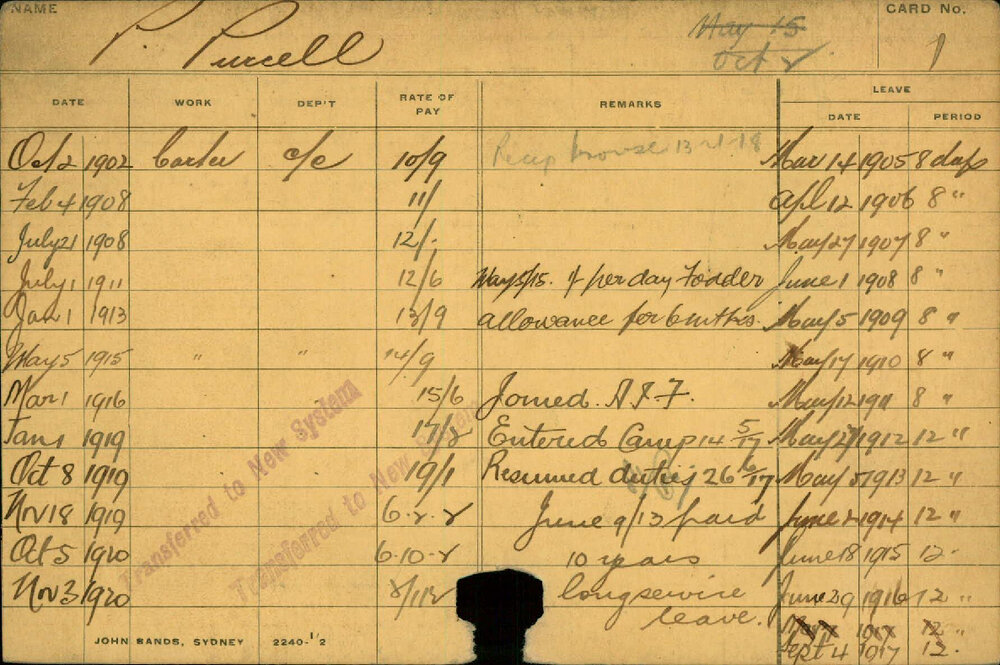 NAME
P. Purcell
May 15
Oct 2
CARD No.
1
DATE WORK DEP'T RATE OF PAY REMARKS LEAVE
DATE PERIOD
Oct 2 1902 Carter c/c 10/9 13-1-18 Mar 14 1905 8 days
Feb 4 1908 11/ Apl 12 1906 8 "
July 21 1908 12/- May 27 1907 8 "
July 1 1911 12/6 May 5/15. 1/ per day Fodder June 1 1908 8 "
Jan 1 1913 13/9 allowance for 6 mths. May 5 1909 8 "
May 5 1915 " " 14/9 May 17 1910 8 "
Mar 1 1916 15/6 Joined A.I.F. May 12 1911 8 "
Jan 1 1919 17/2 Entered Camp 14 5/17 May 27 1912 12 "
Oct 8 1919 19/1 Resumed duties 26 6/17 May 5 1913 12 "
Nov 18 1919 6-2-2 June 9/13 paid June 2 1914 12 "
Oct 5 1920 6-10-2 10 years June 18 1915 12 "
Nov 3 1920 long service June 29 1916 12 "
leave. 12 "
Sept 4 1917 12 "
Transferred to New System
Transferred to New System
JOHN SANDS, SYDNEY 2240-1/2